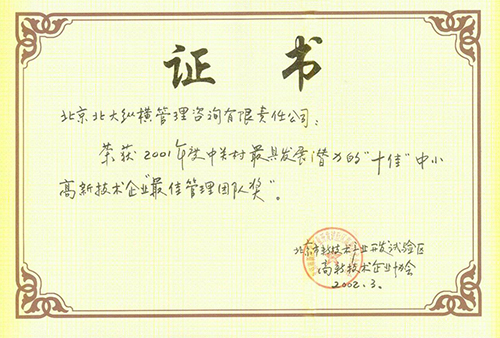 证 书
北京北大纵横管理咨询有限责任公司：
荣获2001年度中关村最具发展潜力的"十佳"中小
高新技术企业"最佳管理团队奖"。
北京市新技术产业开发试验区
高新技术企业协会
2002.3.